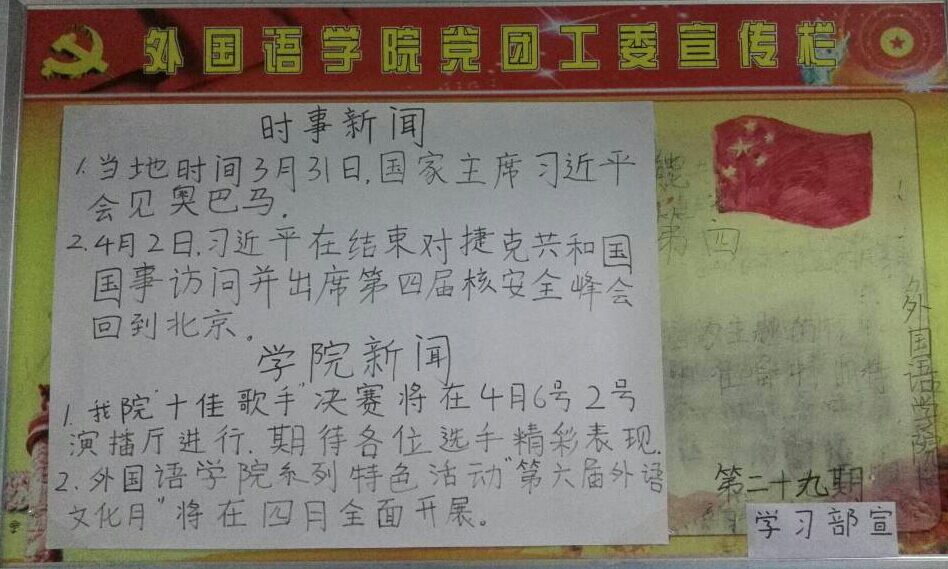 外国语学院党团工委宣传栏
时事新闻
1.当地时间3月31日,国家主席习近平
会见奥巴马.
2.4月2日,习近平在结束对捷克共和国
国事访问并出席第四届核安全峰会
回到北京。
学院新闻
1.我院"十佳歌手"决赛将在4月6号2号
演播厅进行.期待各位选手精彩表现.
2.外国语学院系列特色活动"第六届外语
文化月"将在四月全面开展。
第四
外国语学院
第二十九期
学习部宣